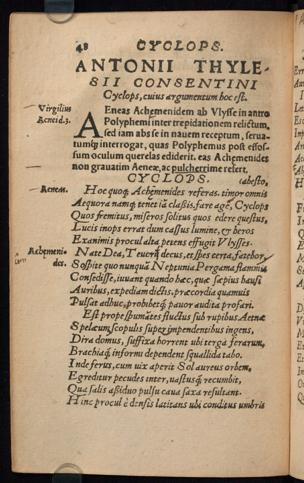 48 CYCLOPS.
ANTONII THYLE-
SII CONSENTINI
Cyclops, cuius argumentum hoc est.
Virgilius
Aeneid.3.
AEneas Achemenidem ab Vlysse in antro
Polyphemi inter trepidationem relictum,
sed iam abs se in nauem receptum, serua-
tumq; interrogat, quas Polyphemus post effos-
sum oculum querelas ediderit. eas Achemenides
non grauatim Aeneæ, ac pulcherrime refert.
CYCLOPS. (abesto,
Aeneas. Hoc quoq; Achemenides referas. timor omnis
Aequora namq; tenet iã classis. fare agē, Cyclops
Quos fremitus, miseros solitus quos edere questus,
Lucis inops erras dum cassus lumine, cy heros
Exanimis procul alta petens effugit Vlysses.
Achemeni-
des.
Nate Dea, Teucrûm decus, et spes certa, fatebor,
Sospite quo nunquã Neptunia Pergama flammis
Consedisse, iuuant quando hæc, quæ sæpius hausi
Auribus, expediam dictis, præcordia quamuis
Pulsat adhuc, prohibetq; pauor audita profari.
Est prope spumātes fluctus sub rupibus Aetnæ
Spelæum, scopulis super impendentibus ingens,
Dira domus, suffixa horrent ubi terga ferarum,
Brachiaq; informi dependent squallida tabo.
Inde ferus, cum uix aperit Sol aureus orbem,
Egreditur pecudes inter, uastusq; recumbit,
Qua salis aßiduo pulsu caua saxa resultant.
Hinc procul è densis latitans ubi conditus umbris